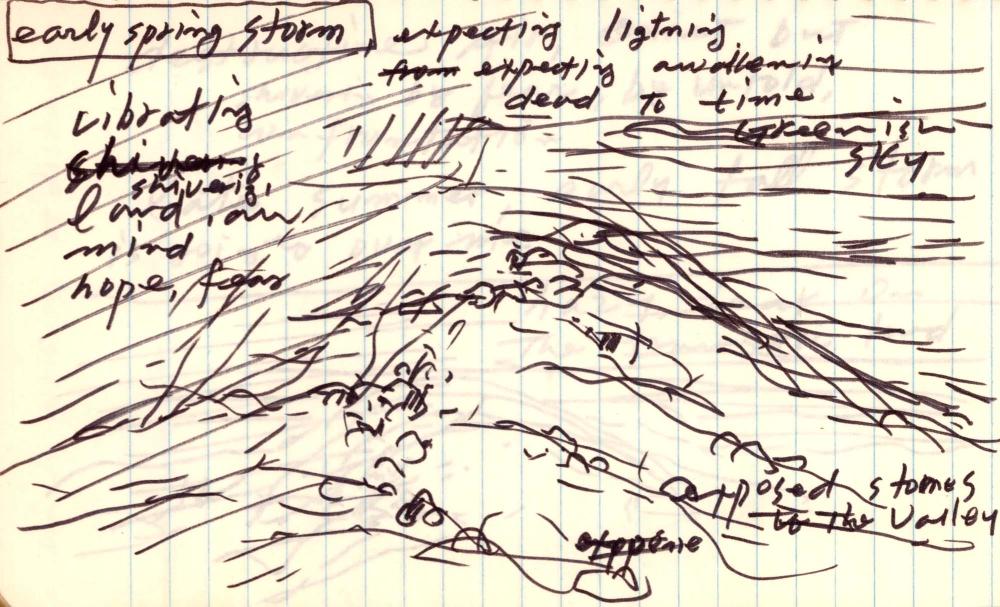 early spring storm
expecting ligtning
from expecting awakening
dead to time
greenish
sky
vibrating
shivering
shivering,
land, air
mind
hope, fear
opposed stones
to the valley
oppose